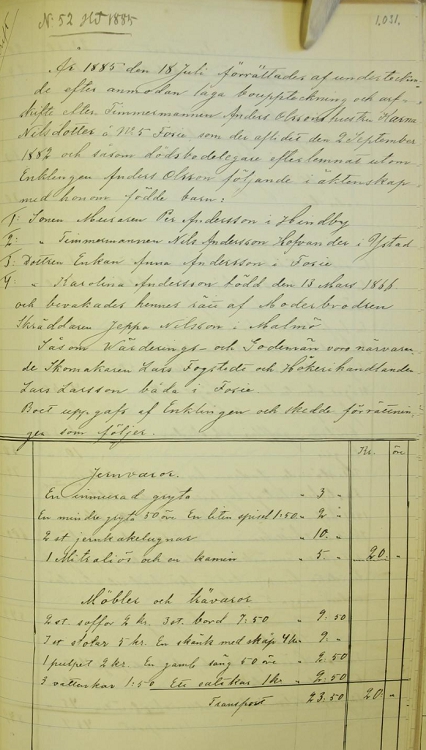 N: 52 Ht 1885
1,031.
År 1885 den 18 Juli förrättades af undertecknade
de efter anmodan laga bouppteckning och arf-
skifte efter Timmermannen Anders Olssons hustru Karna
Nilsdotter å No 5 Fosie som afledit den 2 September
1882 och såsom dödsbodelegare efterlemnat utom
Enklingen Anders Olsson följande i äktenskap
med honom födde barn:
1: Sonen Muraren Per Andersson i Hindby
2: " Timmermannen Nils Andersson Hofvander i Ystad
3: Dottren Enkan Anna Andersson i Fosie
4: " Karolina Andersson född den 13 Mars 1866
och bevakades hennes rätt af Moderbrodren
Skräddaren Jeppa Nilsson i Malmö
Såsom Värderings- och Godemän voro närvaran-
de Skomakaren Lars Fogstedt och Hökerihandlanden
Lars Larsson båda i Fosie.
Boet uppgafs af Enklingen och skedde förrättnin-
gen som följer.
Kr. öre
Jernvaror.
En inmurad gryta " 3 "
En mindre gryta 50 öre En liten spisel 1:50 " 2 "
2 st jernkakelugnar " 10. "
1 och en kamin " 5. " 20 "
Möbler och trävaror
2 st soffor 2 kr. 3 st. bord 7:50 " 9: 50
7 st stolar 5 kr. En skänk med skåp 4 kr " 9 "
1 pulpet 2 kr. En gaml säng 50 öre " 2: 50
3 vattenkar 1:50 Ett 1 kr " 2: 50
Transport 23.50 20 "